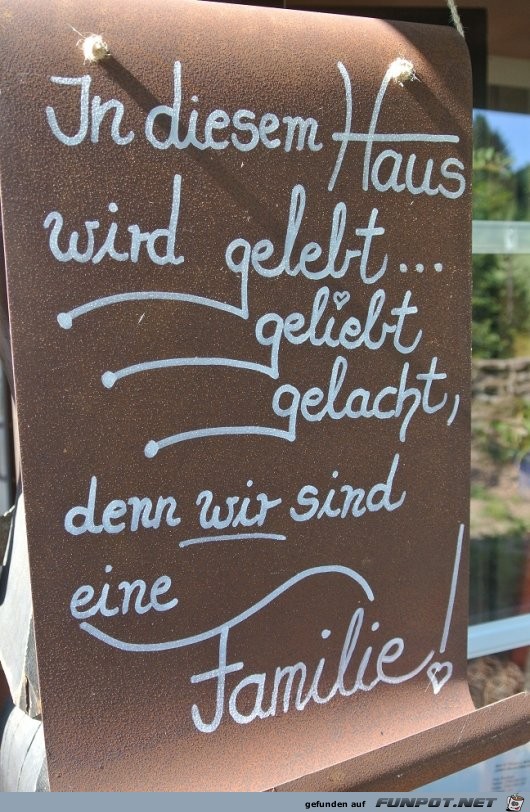 In diesem Haus
wird gelebt...
geliebt
gelacht,
denn wir sind
eine
Familie!
gefunden auf FUNPOT.NET